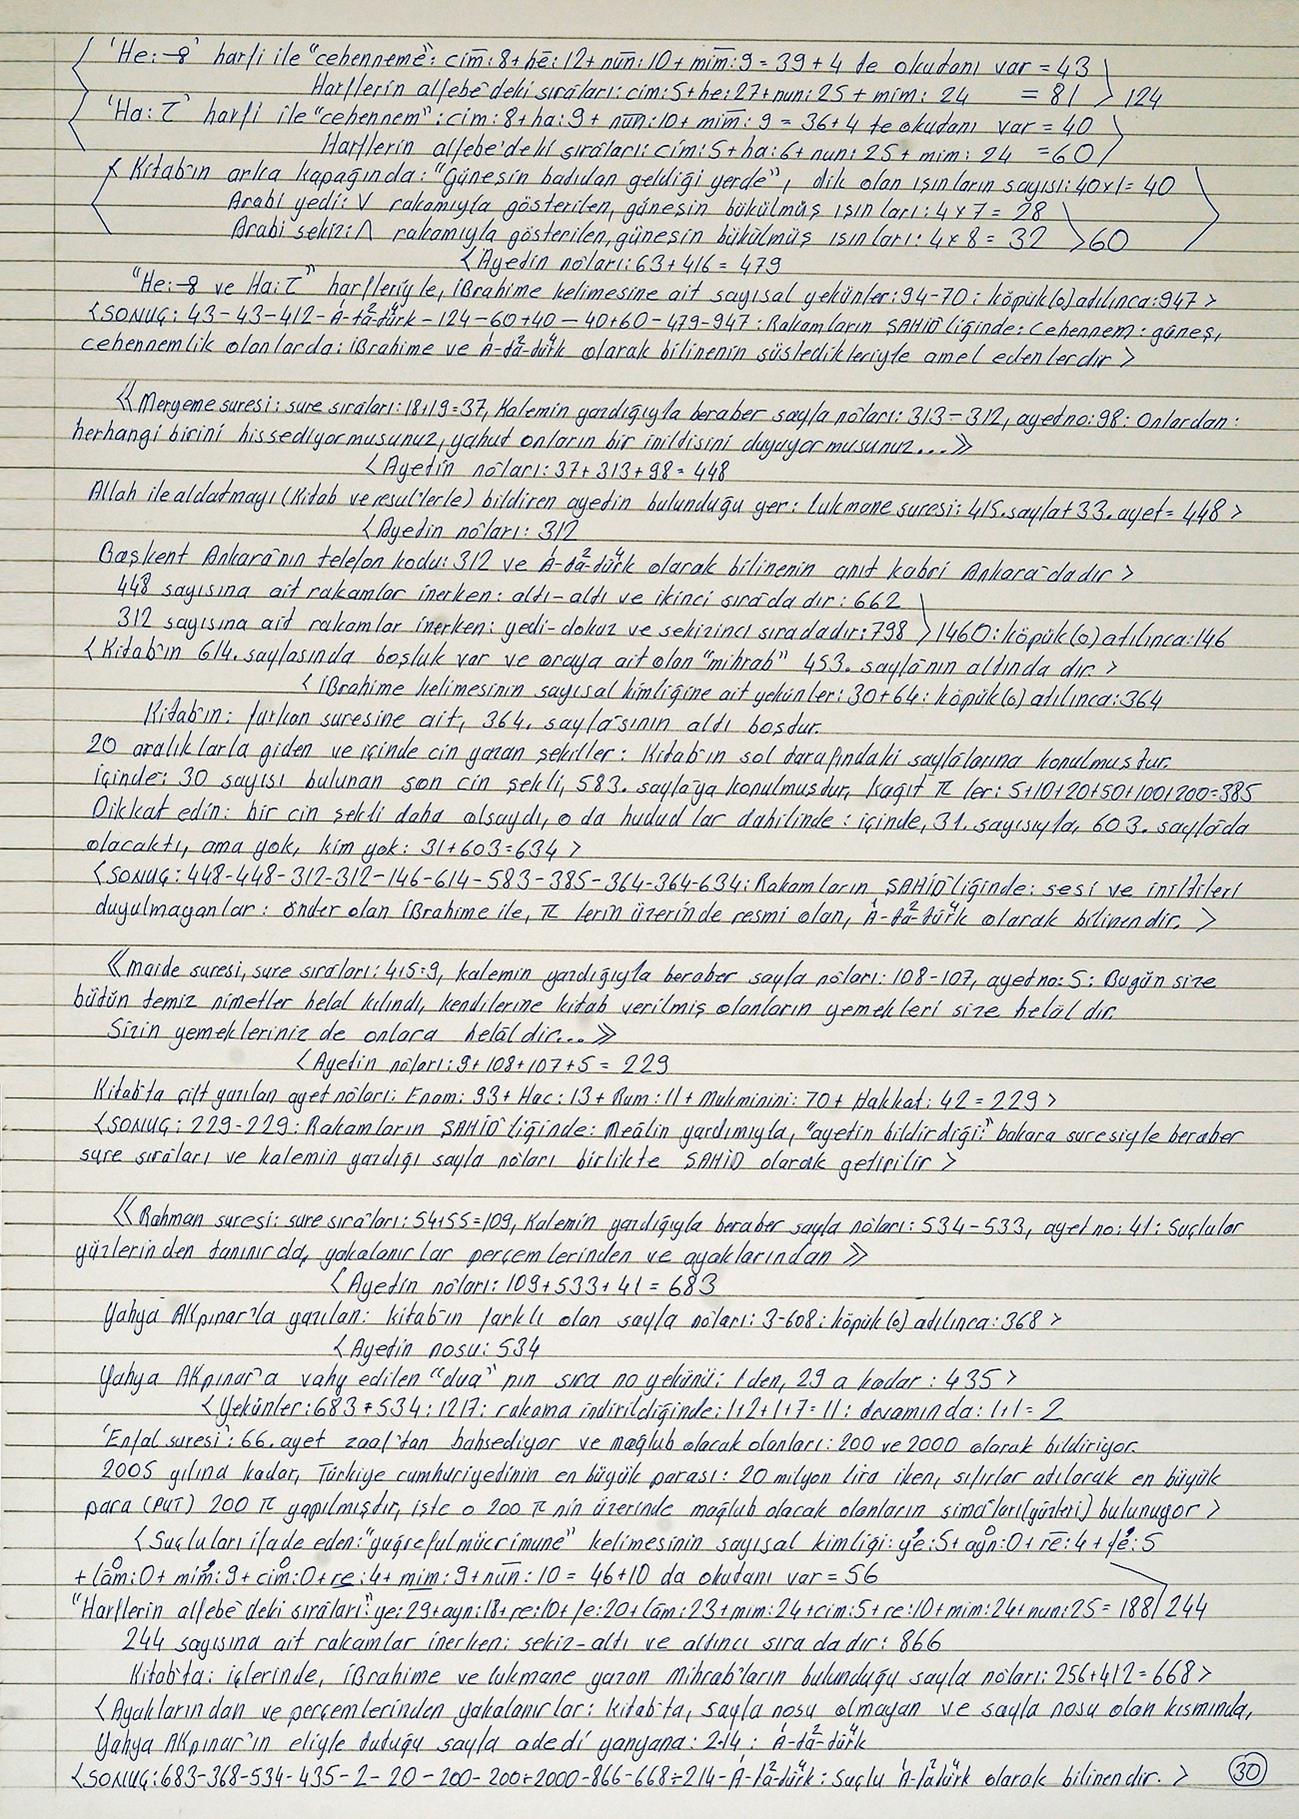 'He: ه' harfi ile "cehenneme": cim: 8+he: 12+nun: 10+mim: 9 = 39+4 te okutanı var = 43
Harflerin alfebe'deki sıraları: cim: 5+he: 27+nun: 25+mim: 24 = 81 > 124
'Ha: ح' harfi ile "cehennem": cim: 8+ha: 9+nun: 10+mim: 9 = 36+4 te okutanı var = 40
Harflerin alfebe'deki sıraları: cim: 5+ha: 6+nun: 25+mim: 24 = 60
Kitab'ın arka kapağında: "Güneşin batıdan geldiği yerde", dik olan ışınların sayısı: 40x1= 40
Arabi yedi: V rakamıyla gösterilen, güneşin bükülmüş ışınları: 4x7 = 28
Arabi sekiz: Λ rakamıyla gösterilen, güneşin bükülmüş ışınları: 4x8 = 32 >60
<Ayetin nôları: 63+416 = 479
"He: ه ve Ha: ح" harfleriyle, İBrahime kelimesine ait sayısal yekünler: 94-70: köpük(o) atılınca: 947>
<SONUÇ: 43-43-412-A-ta-türk-124-60+40-40+60-479-947: Rakamların ŞAHİD'liğinde: Cehennem: güneş,
cehennemlik olanlarda: İBrahime ve A-ta-türk olarak bilinenin süsledikleriyle amel edenlerdir>
《Meryeme suresi: sure sıraları: 18+19=37, Kalemin yazdığıyla beraber sayfa nôları: 313-312, ayet no: 98: Onlardan:
herhangi birini hissediyormusunuz, yahut onların bir iniltisini duyuyormusunuz...》
<Ayetin nôları: 37+313+98= 448
Allah ile aldatmayı (Kitab ve resul'lerle) bildiren ayetin bulunduğu yer: lukmane suresi: 415. sayfa+33. ayet= 448>
<Ayetin nôları: 312
Başkent Ankara'nın telefon kodu: 312 ve A-ta-türk olarak bilinenin anıt kabri Ankara'dadır>
448 sayısına ait rakamlar inerken: altı-altı ve ikinci sıra'da dır: 662
312 sayısına ait rakamlar inerken: yedi-dokuz ve sekizinci sıradadır: 798 >1460: köpük(o) atılınca: 146
<Kitab'ın 614. sayfasında boşluk var ve oraya ait olan "mihrab" 453. sayfa'nın altında dır.>
<İBrahime kelimesinin sayısal kimliğine ait yekünler: 30+64: köpük(o) atılınca: 364
Kitab'ın: furkan suresine ait, 364. sayfa'sının altı boşdur.
20 aralıklarla giden ve içinde cin yazan şekiller: Kitab'ın sol tarafındaki sayfalarına konulmuştur.
içinde: 30 sayısı bulunan son cin şekli, 583. sayfa'ya konulmuşdur, kağıt π ler: 5+10+20+50+100+200=385
Dikkat edin: bir cin şekli daha olsaydı, o da hudud'lar dahilinde: içinde, 31. sayısıyla, 603. sayfa'da
olacaktı, ama yok, kim yok: 31+603=634>
<SONUÇ: 448-448-312-312-146-614-583-385-364-364-634: Rakamların ŞAHİD'liğinde: sesi ve iniltileri
duyulmayanlar: önder olan İBrahime ile, π lerin üzerinde resmi olan, A-ta-türk olarak bilinendir.>
《maide suresi, sure sıraları: 4+5=9, kalemin yazdığıyla beraber sayfa nôları: 108-107, ayet no: 5: Bugün size
bütün temiz nimetler helal kılındı, kendilerine kitab verilmiş olanların yemekleri size helâl dir.
Sizin yemekleriniz de onlara helâl dir...》
<Ayetin nôları: 9+108+107+5 = 229
Kitab'ta çift yazılan ayet nôları: Enam: 93+Hac: 13+Rum: 11+Mukminini: 70+Hakkat: 42=229>
<SONUÇ: 229-229: Rakamların ŞAHİD'liğinde: meâlin yardımıyla, "ayetin bildirdiği:" bakara suresiyle beraber
sure sıraları ve kalemin yazdığı sayfa nôları birlikte ŞAHİD olarak getirilir>
《Rahman suresi: sure sıra'ları: 54+55=109, Kalemin yazdığıyla beraber sayfa nôları: 534-533, ayet no: 41: Suçlular
yüzlerinden tanınır da, yakalanırlar perçemlerinden ve ayaklarından》
<Ayetin nôları: 109+533+41 = 683
Yahya AKpınar'la yazılan: kitab'ın farklı olan sayfa nôları: 3-608: köpük(o) atılınca: 368>
<Ayetin nosu: 534
Yahya AKpınar'a vahy edilen "dua" nın sıra no yekünü: 1 den, 29 a kadar: 435>
<Yekünler: 683+534: 1217: rakama indirildiğinde: 1+2+1+7=11: devamında: 1+1= 2
'Enfal suresi': 66. ayet zaaf'tan bahsediyor ve mağlub olacak olanları: 200 ve 2000 olarak bildiriyor.
2005 yılına kadar, Türkiye cumhuriyedinin en büyük parası: 20 milyon lira iken, sıfırlar atılarak en büyük
para (PUT) 200 π yapılmıştır, işte o 200 π nin üzerinde mağlub olacak olanların sima'ları (yüzleri) bulunuyor>
<Suçluları ifade eden: "yuğreful mücrimune" kelimesinin sayısal kimliği: ye: 5+ayn: 0+re: 4+fe: 5
+lâm: 0+mim: 9+cim: 0+re: 4+mim: 9+nun: 10 = 46+10 da okutanı var = 56
"Harflerin alfebe'deki sıraları: ye: 29+ayn: 18+re: 10+fe: 20+lâm: 23+mim: 24+cim: 5+re: 10+mim: 24+nun: 25= 188/244
244 sayısına ait rakamlar inerken: sekiz-altı ve altıncı sıra da dır: 866
Kitab'ta: içlerinde, İBrahime ve lukmane yazan Mihrab'ların bulunduğu sayfa nôları: 256+412=668>
<Ayaklarından ve perçemlerinden yakalanırlar: kitab'ta, sayfa nosu olmayan ve sayfa nosu olan kısmında,
Yahya AKpınar'ın eliyle tuttuğu sayfa adedi yanyana: 2+14: A-ta-türk
<SONUÇ: 683-368-534-435-2-20-200-200÷2000-866-668÷214-A-ta-türk: Suçlu A-tatürk olarak bilinendir.> 30